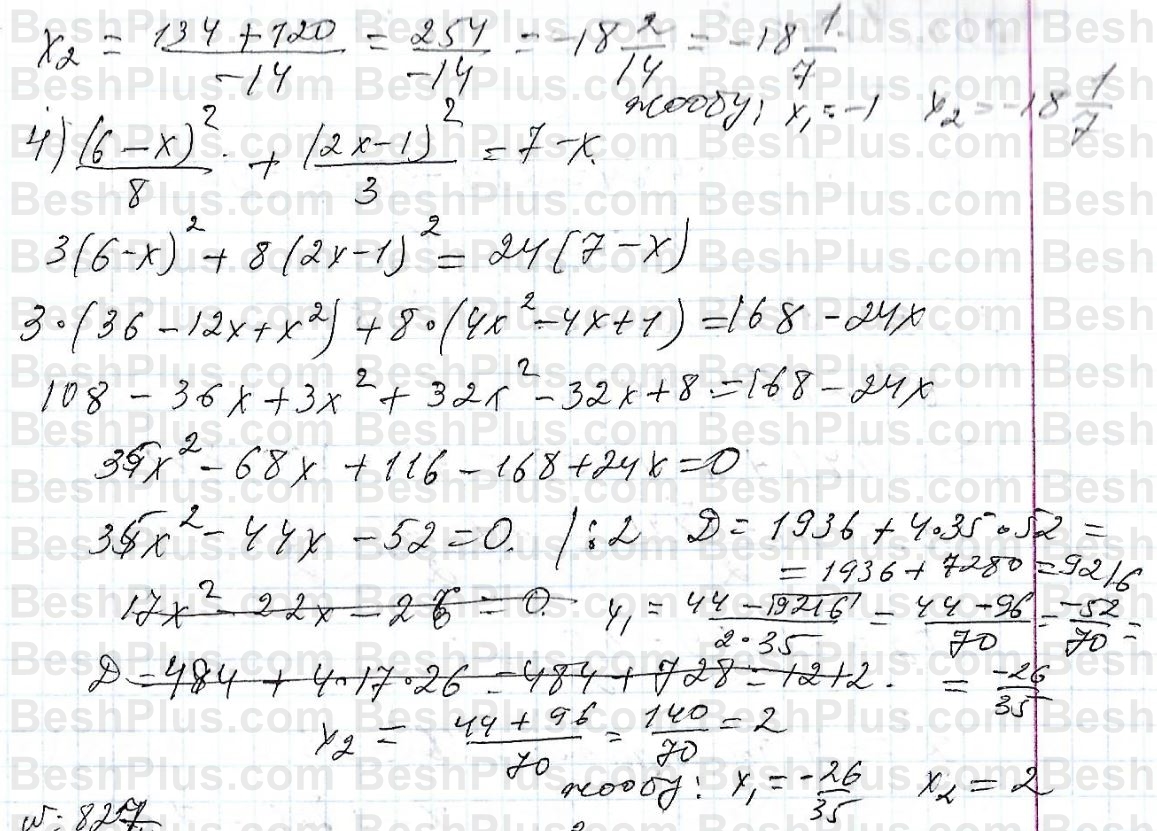 x₂ = (134+120)/(-14) = 254/(-14) = -18 2/14 = -18 1/7
жообу: x₁ = -1 x₂ = -18 1/7
4) (6-x)²/8 + (2x-1)²/3 = 7-x
3(6-x)² + 8(2x-1)² = 24(7-x)
3·(36-12x+x²) + 8·(4x²-4x+1) = 168-24x
108-36x+3x²+32x²-32x+8=168-24x
35x²-68x+116-168+24x=0
35x²-44x-52=0. /:2 D=1936+4·35·52=
=1936+7280=9216
17x²-22x-26=0 y₁ = (44-√9216)/(2·35) = (44-96)/70 = -52/70 =
D=484+4·17·26=484+728=1212. = -26/35
x₂ = (44+96)/70 = 140/70 = 2
жообу: x₁ = -26/35 x₂ = 2
BeshPlus.com